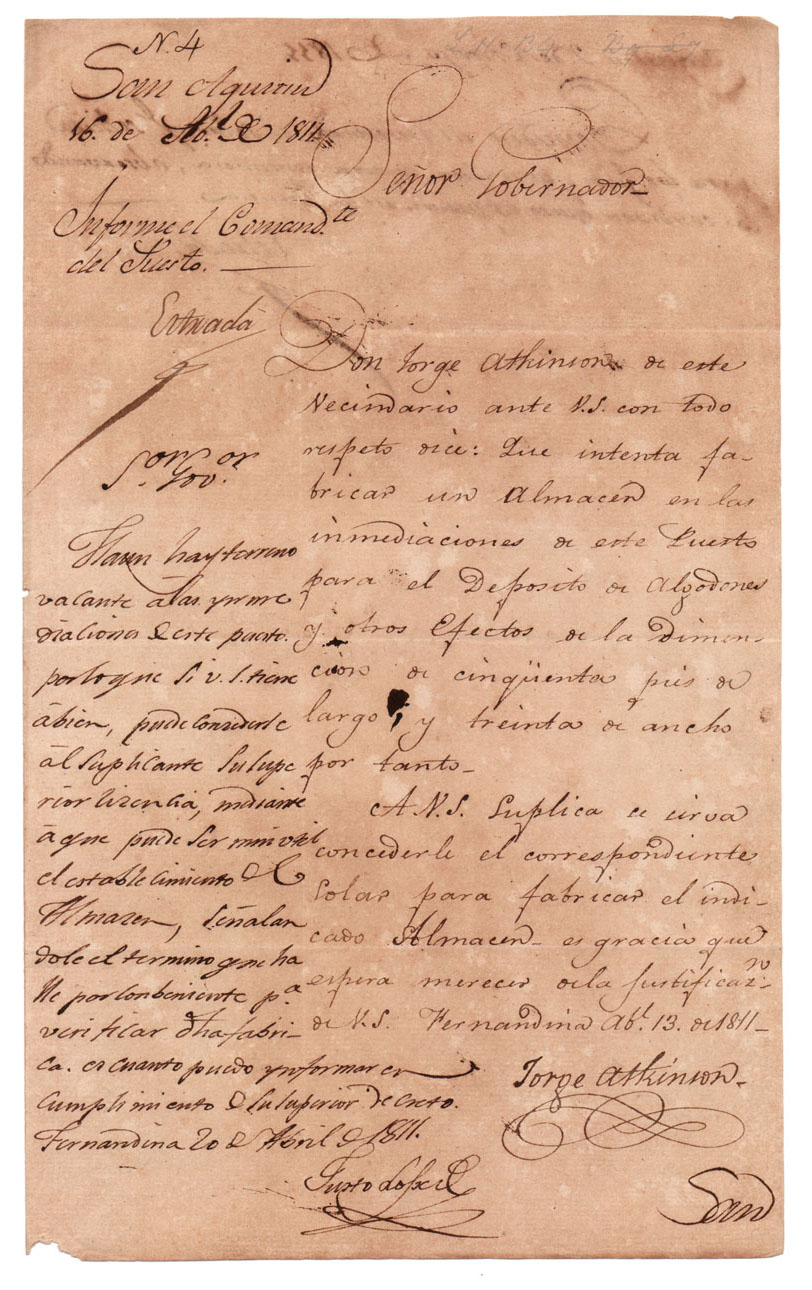 N. 4
San Agustin
16. de Ab.l de 1811
Informe el Comand.te
del Puerto.
Estrada
Señor Gobernador
Don Jorge Atkinson de este
Vecindario ante V.S. con todo
respeto dice: Que intenta fa-
bricar un Almacen en las
inmediaciones de este Puerto
para el Deposito de Algodones
y otros Efectos de la Dimen-
cion de cinqüenta pies de
largo, y treinta de ancho
por tanto-
A V.S. Suplica se cirva
concederle el correspondiente
Solar para fabricar el indi-
cado Almacen- es gracia que
espera merecer de la Justificaz.n
de V.S. Fernandina Ab.l 13. de 1811-
Jorge Atkinson-
S.or Gov.or
Haun hay terreno
vacante â las ynme
diaciones de este puerto.
por lo que si V.S. tiene
âbien, puede consederle
âl suplicante su supe
rior lizencia, mediante
â que puede ser mui util
el establecimiento del
Almazen, señalan
dole el termino que ha
lle por conbeniente p.a
verificar dha fabri-
ca. es cuanto puedo ynformar en
cumplimiento de su superior decreto.
Fernandina 20 de Abril de 1811.
Justo Lopez
San